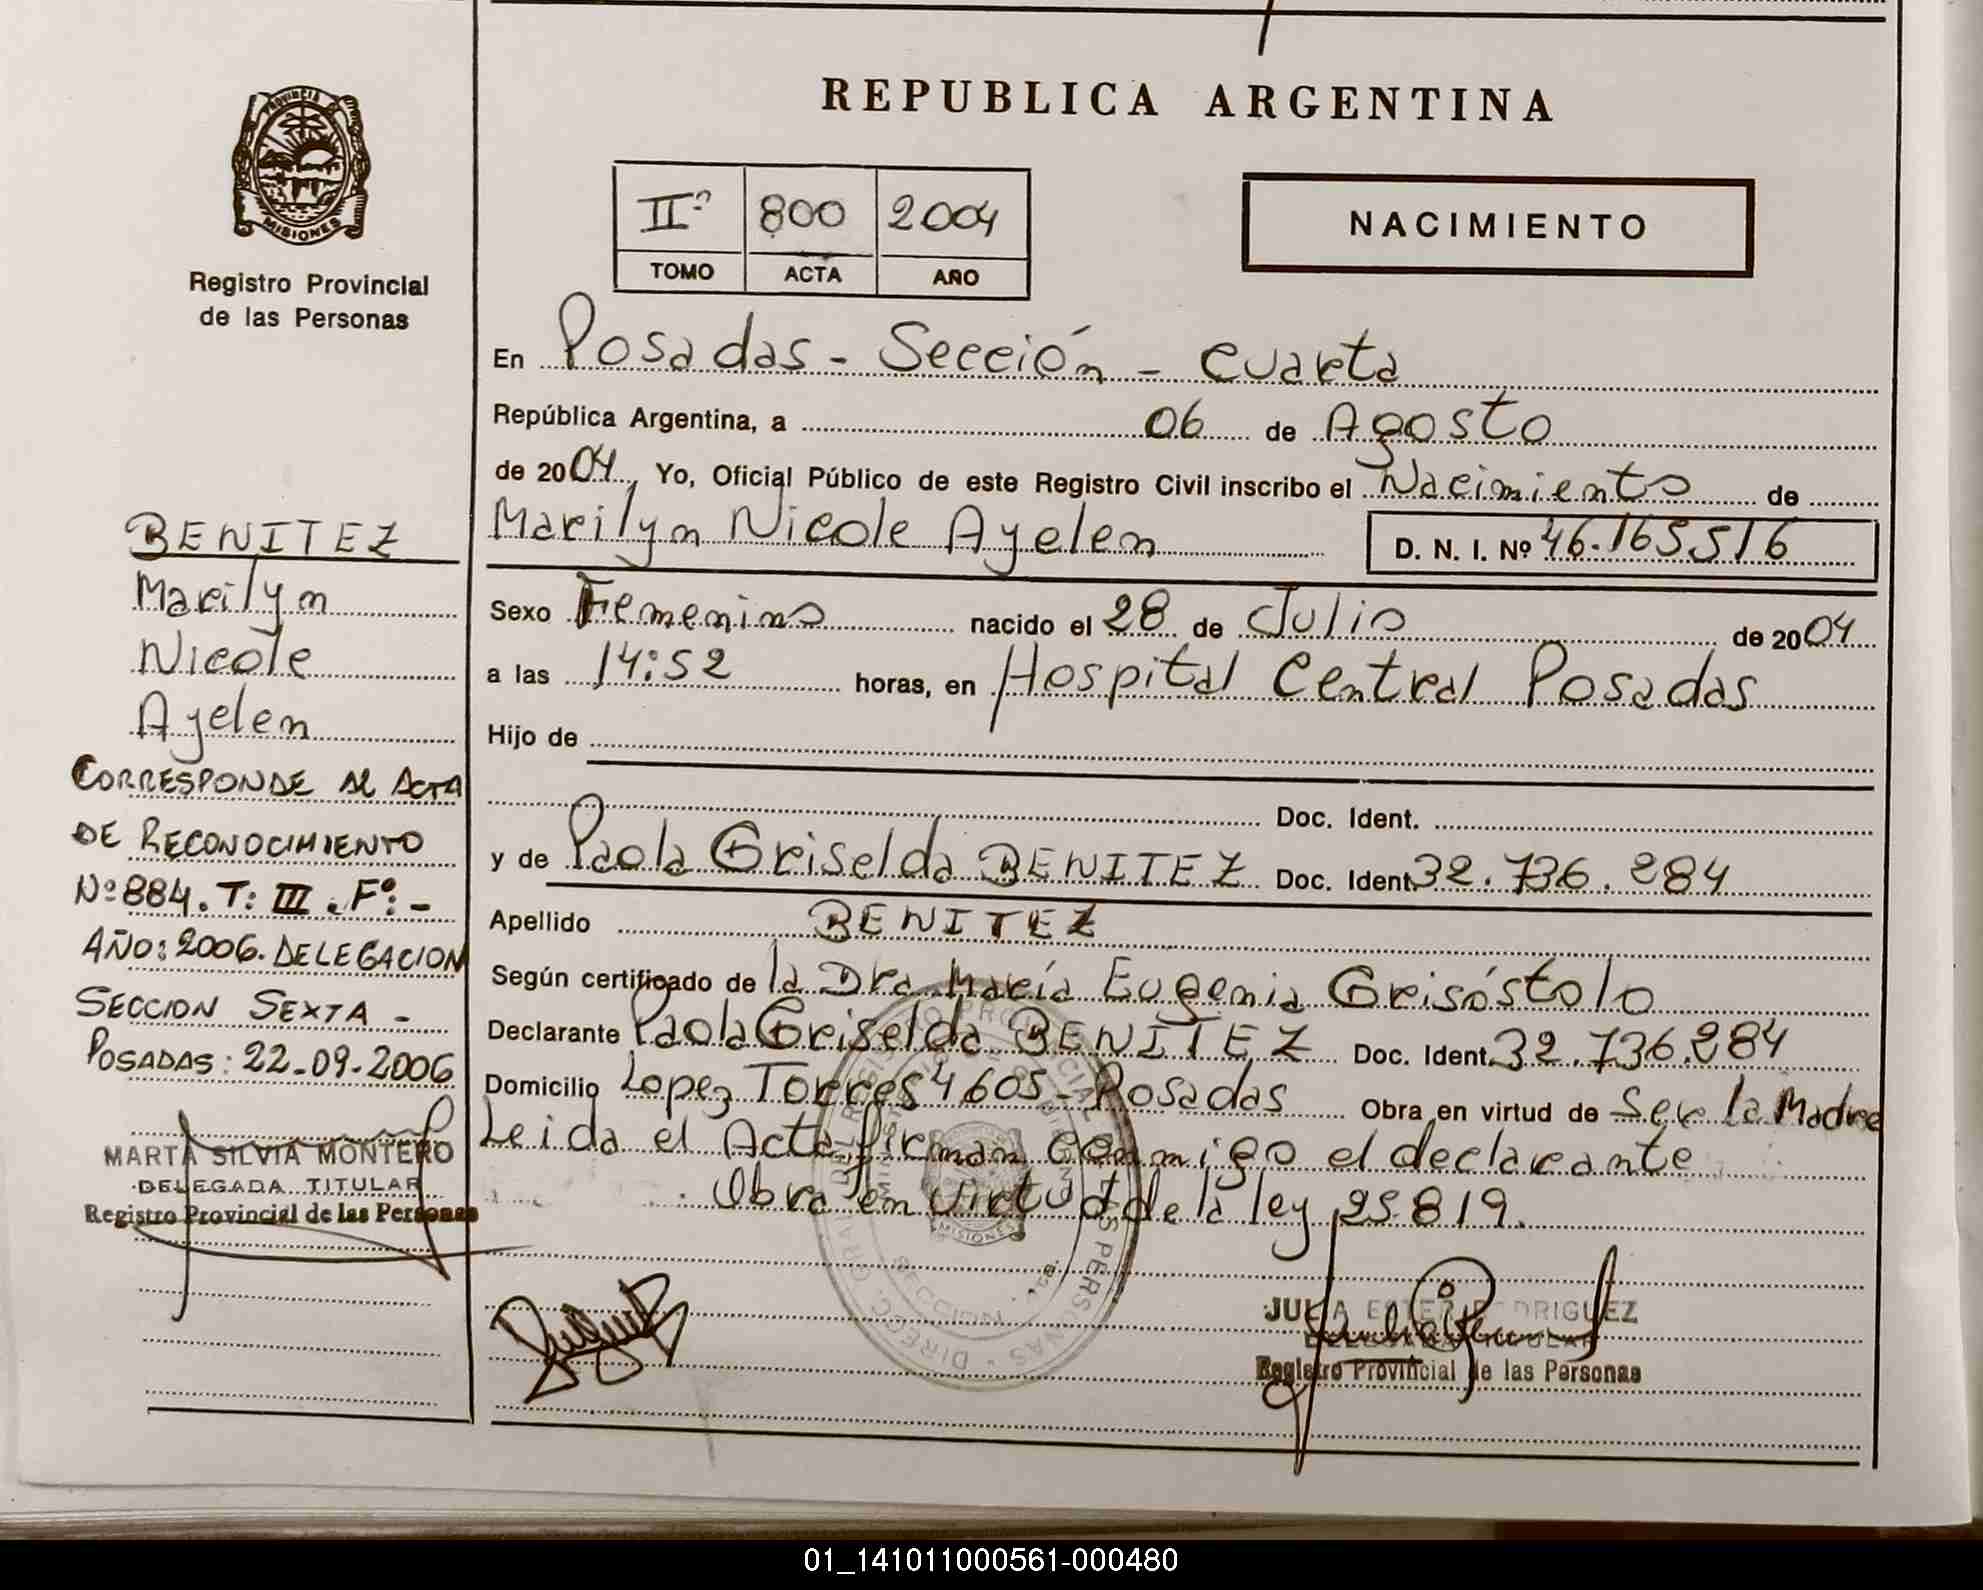 REPUBLICA ARGENTINA
PROVINCIA
MISIONES
Registro Provincial
de las Personas
IIº 800 2004
TOMO ACTA AÑO
NACIMIENTO
En Posadas - Sección - Cuarta
República Argentina, a 06 de Agosto
de 2004, Yo, Oficial Público de este Registro Civil inscribo el Nacimiento de
Marilyn Nicole Ayelen D. N. I. Nº 46.165.516
Sexo Femenino nacido el 28 de Julio de 2004
a las 14:52 horas, en Hospital Central Posadas
Hijo de
Doc. Ident.
y de Paola Griselda BENITEZ Doc. Ident. 32.736.284
Apellido BENITEZ
Según certificado de la Dra María Eugenia Grisóstolo
Declarante Paola Griselda BENITEZ Doc. Ident. 32.736.284
Domicilio Lopez Torres 4605 - Posadas Obra en virtud de Ser la Madre
Leida el Acta firman conmigo el declarante
Obra en virtud de la ley 25819.
BENITEZ
Marilyn
Nicole
Ayelen
CORRESPONDE AL ACTA
DE RECONOCIMIENTO
Nº 884. T: III. Fº: -
AÑO: 2006. DELEGACION
SECCION SEXTA -
POSADAS: 22-09-2006
MARTA SILVIA MONTERO
DELEGADA TITULAR
Registro Provincial de las Personas
JULIA ESTER RODRIGUEZ
DELEGADA TITULAR
Registro Provincial de las Personas
01_141011000561-000480